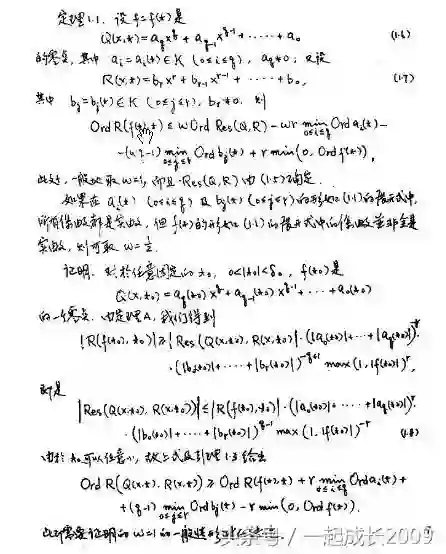 定理1.1. 设 f=f(t)是
Q(x,t)=a_q x^q+a_{q-1}x^{q-1}+……+a_0 (1.6)
的零点, 其中 a_i=a_i(t)∈K (0≤i≤q), a_q≠0, 又设
R(x,t)=b_r x^r+b_{r-1}x^{r-1}+……+b_0, (1.7)
其中 b_j=b_j(t)∈K (0≤j≤r), b_r≠0. 则
Ord R(f(t),t) ≤ w Ord Res(Q,R) − wr min_{0≤i≤q} Ord a_i(t) −
−(q−1) min_{0≤j≤r} Ord b_j(t) + r min(0, Ord f(t)),
此处, 一般地取 w=1, 而且 Res(Q,R) 由(1.5)确定.
如果在 a_i(t) (0≤i≤q) 及 b_j(t) (0≤j≤r)的形如(1.1)的展式中,
所有系数都是实数, 但 f(t)的形如(1.1)的展式中的系数并非全是
实数, 则可取 w=½.
证明. 对於任意固定的 t_0, 0<|t_0|<δ_0, f(t_0)是
Q(x,t_0)=a_q(t_0)x^q+a_{q-1}(t_0)x^{q-1}+…+a_0(t_0)
的一个零点. 由定理A, 我们得到
|R(f(t_0),t_0)|≥|Res(Q(x,t_0),R(x,t_0))|·(|a_0(t_0)|+…+|a_q(t_0)|)^{-r}·
·(|b_0(t_0)|+……+|b_r(t_0)|)^{-q+1} max(1,|f(t_0)|)^r,
即是
|Res(Q(x,t_0),R(x,t_0))|≤|R(f(t_0),t_0)|·(|a_0(t_0)|+…+|a_q(t_0)|)^r·
·(|b_0(t_0)|+……+|b_r(t_0)|)^{q-1} max(1,|f(t_0)|)^{-r} (1.8)
由於 t_0可以任意小, 故上式及引理1.3给出
Ord R(Q(x,t),R(x,t))≥Ord R(f(t),t)+r min_{0≤i≤q} Ord a_i(t)+
+(q−1) min_{0≤j≤r} Ord b_j(t)−r min(0,Ord f(t)).
此即需要证明的 w=1的一般情形
头条号 / 一起成长2009